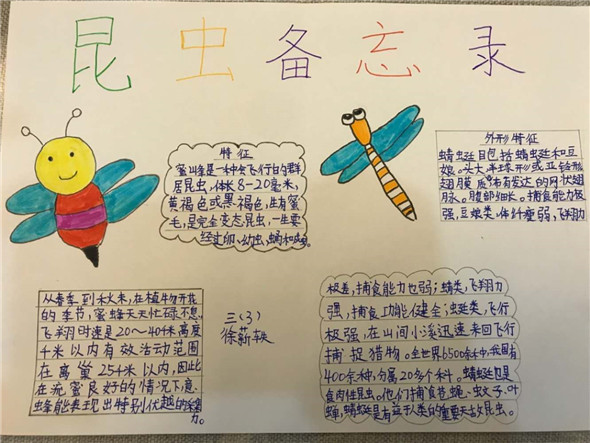 昆虫备忘录
特征
蜜蜂是一种会飞行的群
居昆虫,体长8-20毫米,
黄褐色或黑褐色,生有蜜
毛,是完全变态昆虫,一生要
经过卵、幼虫、蛹和成虫。
外形特征
蜻蜓目包括蜻蜓和豆
娘。头大半球形或亚铃形
翅膜质有发达的网状翅
脉。腹部细长。捕食能力极
强,豆娘类体纤瘦弱,飞翔力
从春季到秋末,在植物开花
的季节,蜜蜂天天忙碌不息。
飞翔时速是20~40千米高度
千米以内有效活动范围
在离巢254米以内,因此
在流蜜良好的情况下,意
蜂能表现出特别优越的采集
力。
三(3)
徐薪轶
极差,捕食能力也弱;蜻类,飞翔力
强,捕食功能健全;蜓类,飞行
极强,在山间小溪迅速来回飞行
捕捉猎物。全世界6500余种,我国有
400余种,分属20多个科。蜻蜓也是
食肉性昆虫。他们捕食苍蝇、蚊子、叶
蝉,蜻蜓是有益于人类的重要天敌昆虫。